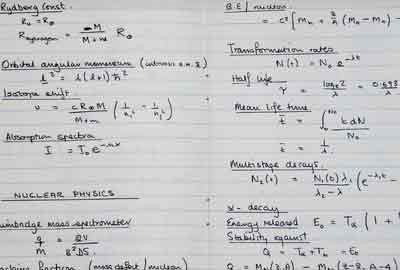 Rydberg Const.
R∞ = R∞
R Hydrogen = M / M+m R∞
Orbital angular momentum
l² = l(l+1) ħ²
Isotope shift.
υ = cR∞M / M+m (1/n₁² - 1/n₂²)
Absorption spectra
I = I₀e
NUCLEAR PHYSICS
mass spectrometer
q/m = 2V / B²DS
fraction (mass defect / nucleon)
B.E / nucleon
= c² [Mn + Z/A (MH - Mn) -
Transformation rates
N(t) = N₀ e^-λt
Half life
τ = loge2 / λ = 0.693 / λ
Mean life time
t̄ = ∫ t dN / N₀
t̄ = 1/λ
Multistage decays.
N₂(t) = N₁(0) λ₁ / λ₂ - λ₁ (e^-λ₁t -
α - decay
Energy released E₀ = Tα (1 +
Stability against
Q = Tα + Tb = E₀
Q = (Z,A) - (Z-2, A-4)